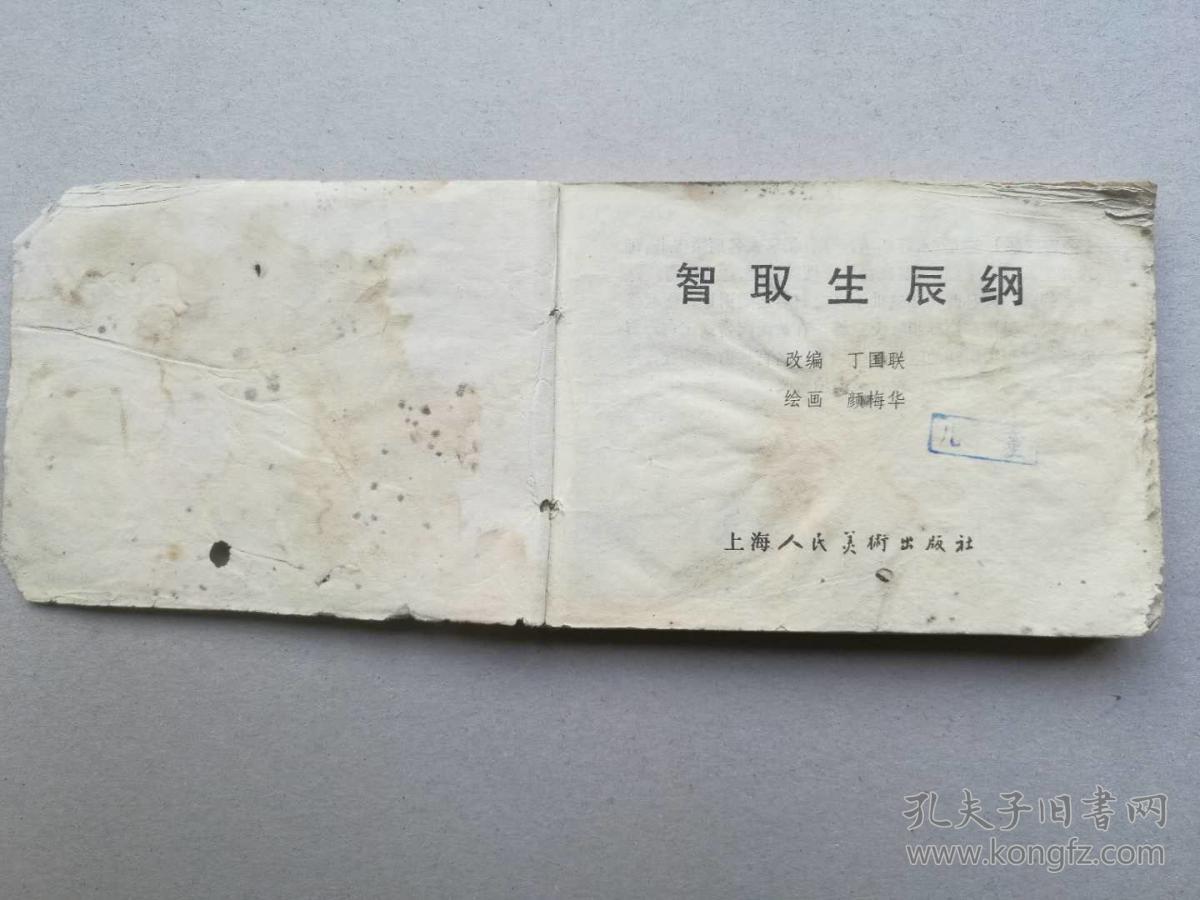 智取生辰纲
改编 丁国联
绘画 颜梅华
儿童
上海人民美術出版社
孔夫子旧書网
www.kongfz.com